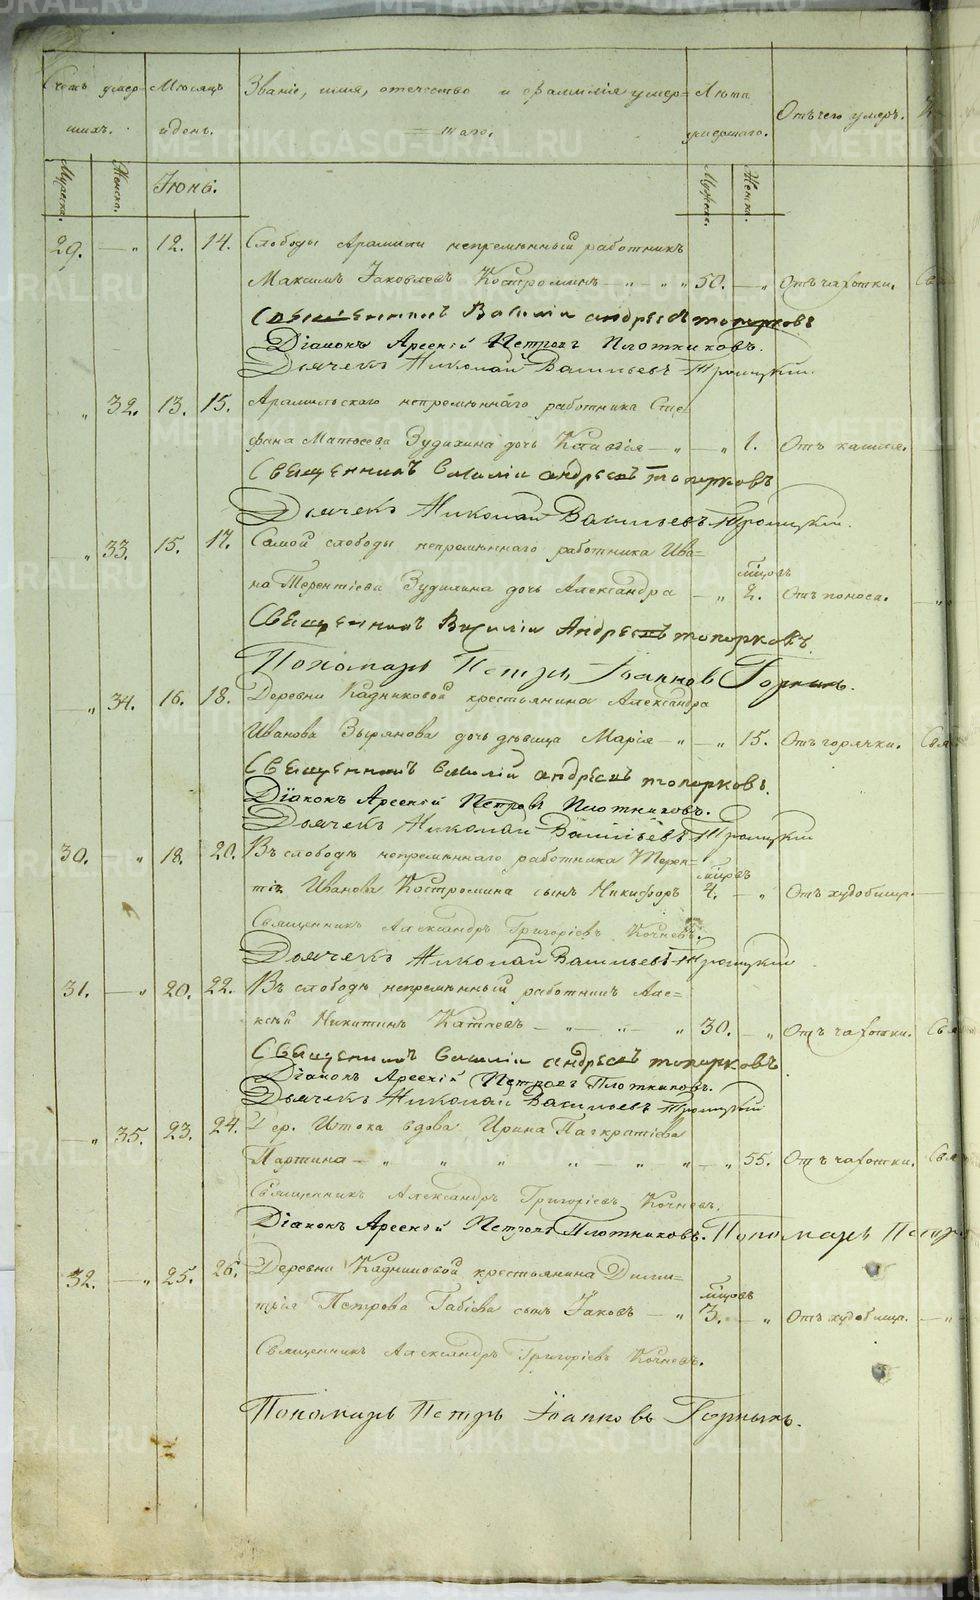 Счетъ умер- Мѣсяцъ Званіе, имя, отечество и фамилія умер= Лѣта
шихъ. и день. шаго. умершаго. Отъ чего умеръ.
Мужеска. Женска. Іюнь. Мужеска. Женска.
29. — „ 12. 14. Слободы Арамили непремѣнный работникъ
Максимъ Іаковлевъ Костроминъ — „ — „ „ 50. — „ Отъ чахотки.
Священникъ Василій Андреевъ Топорковъ
Діаконъ Арсеній Петровъ Плотниковъ.
Дьячекъ Николай Васильевъ Троицкій.
„ 32. 13. 15. Арамильскаго непремѣннаго работника Сте
фана Матѳеева Зудихина дочь Клавдія — „ — „ 1. Отъ кашля.
Священникъ Василій Андреевъ Топорковъ
Дьячекъ Николай Васильевъ Троицкій.
„ 33. 15. 17. Самой слободы непремѣннаго работника Ива=
мѣсцовъ
на Терентіева Зудихина дочь Александра — „ 2. Отъ поноса.
Священникъ Василій Андреевъ Топорковъ.
Пономарь Петръ Іоанновъ Горныхъ.
„ 34. 16. 18. Деревни Кадниковой крестьянина Александра
Иванова Зырянова дочь дѣвица Марія — „ — „ 15. Отъ горячки.
Священникъ Василій Андреевъ Топорковъ.
Діаконъ Арсеній Петровъ Плотниковъ.
Дьячекъ Николай Васильевъ Троицкій
30. — „ 18. 20. Въ слободѣ непремѣннаго работника Терен=
мѣсцовъ
тія Иванова Костромина сынъ Никифоръ 4. — „ Отъ худобищ.
Священникъ Александръ Григоріевъ Кочневъ.
Дьячекъ Николай Васильевъ Троицкій
31. — „ 20. 22. Въ слободѣ непремѣнный работникъ Але=
ксѣй Никитинъ — „ — „ — „ 30. — „ Отъ чахотки.
Священникъ Василій Андреевъ Топорковъ
Діаконъ Арсеній Петровъ Плотниковъ.
Дьячекъ Николай Васильевъ Троицкій
— „ 35. 23. 24. Дер. Истока вдова Ирина Панкратіева
Партина — „ „ „ „ — „ „ — „ 55. Отъ чахотки.
Священникъ Александръ Григоріевъ Кочневъ.
Діаконъ Арсеній Петровъ Плотниковъ. Пономарь Петръ
32. — „ 25. 26. Деревни Кадниковой крестьянина Дими=
мѣсцовъ
трія Петрова Габіева сынъ Іаковъ — „ 3. — „ Отъ худобищ.
Священникъ Александръ Григоріевъ Кочневъ.
Пономарь Петръ Іоанновъ Горныхъ.
METRIKI.GASO-URAL.RU